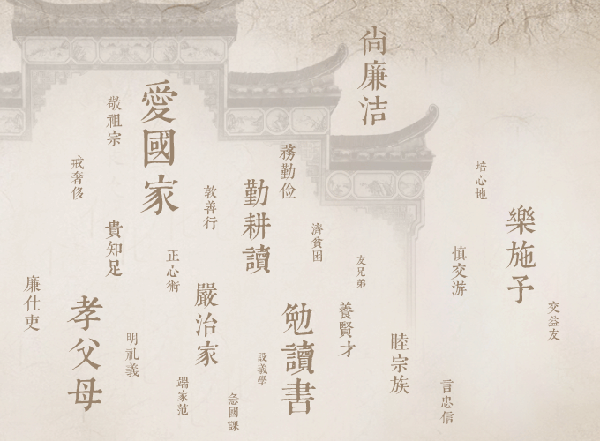 尚廉洁
愛國家
敬祖宗
戒奢侈
務勤儉
敦善行
勤耕讀
培心地
樂施予
貴知足
濟貧困
正心術
友兄弟
慎交游
廉仕吏
孝父母
嚴治家
養賢才
勉讀書
交益友
明禮義
睦宗族
設義學
端家范
急國課
言忠信